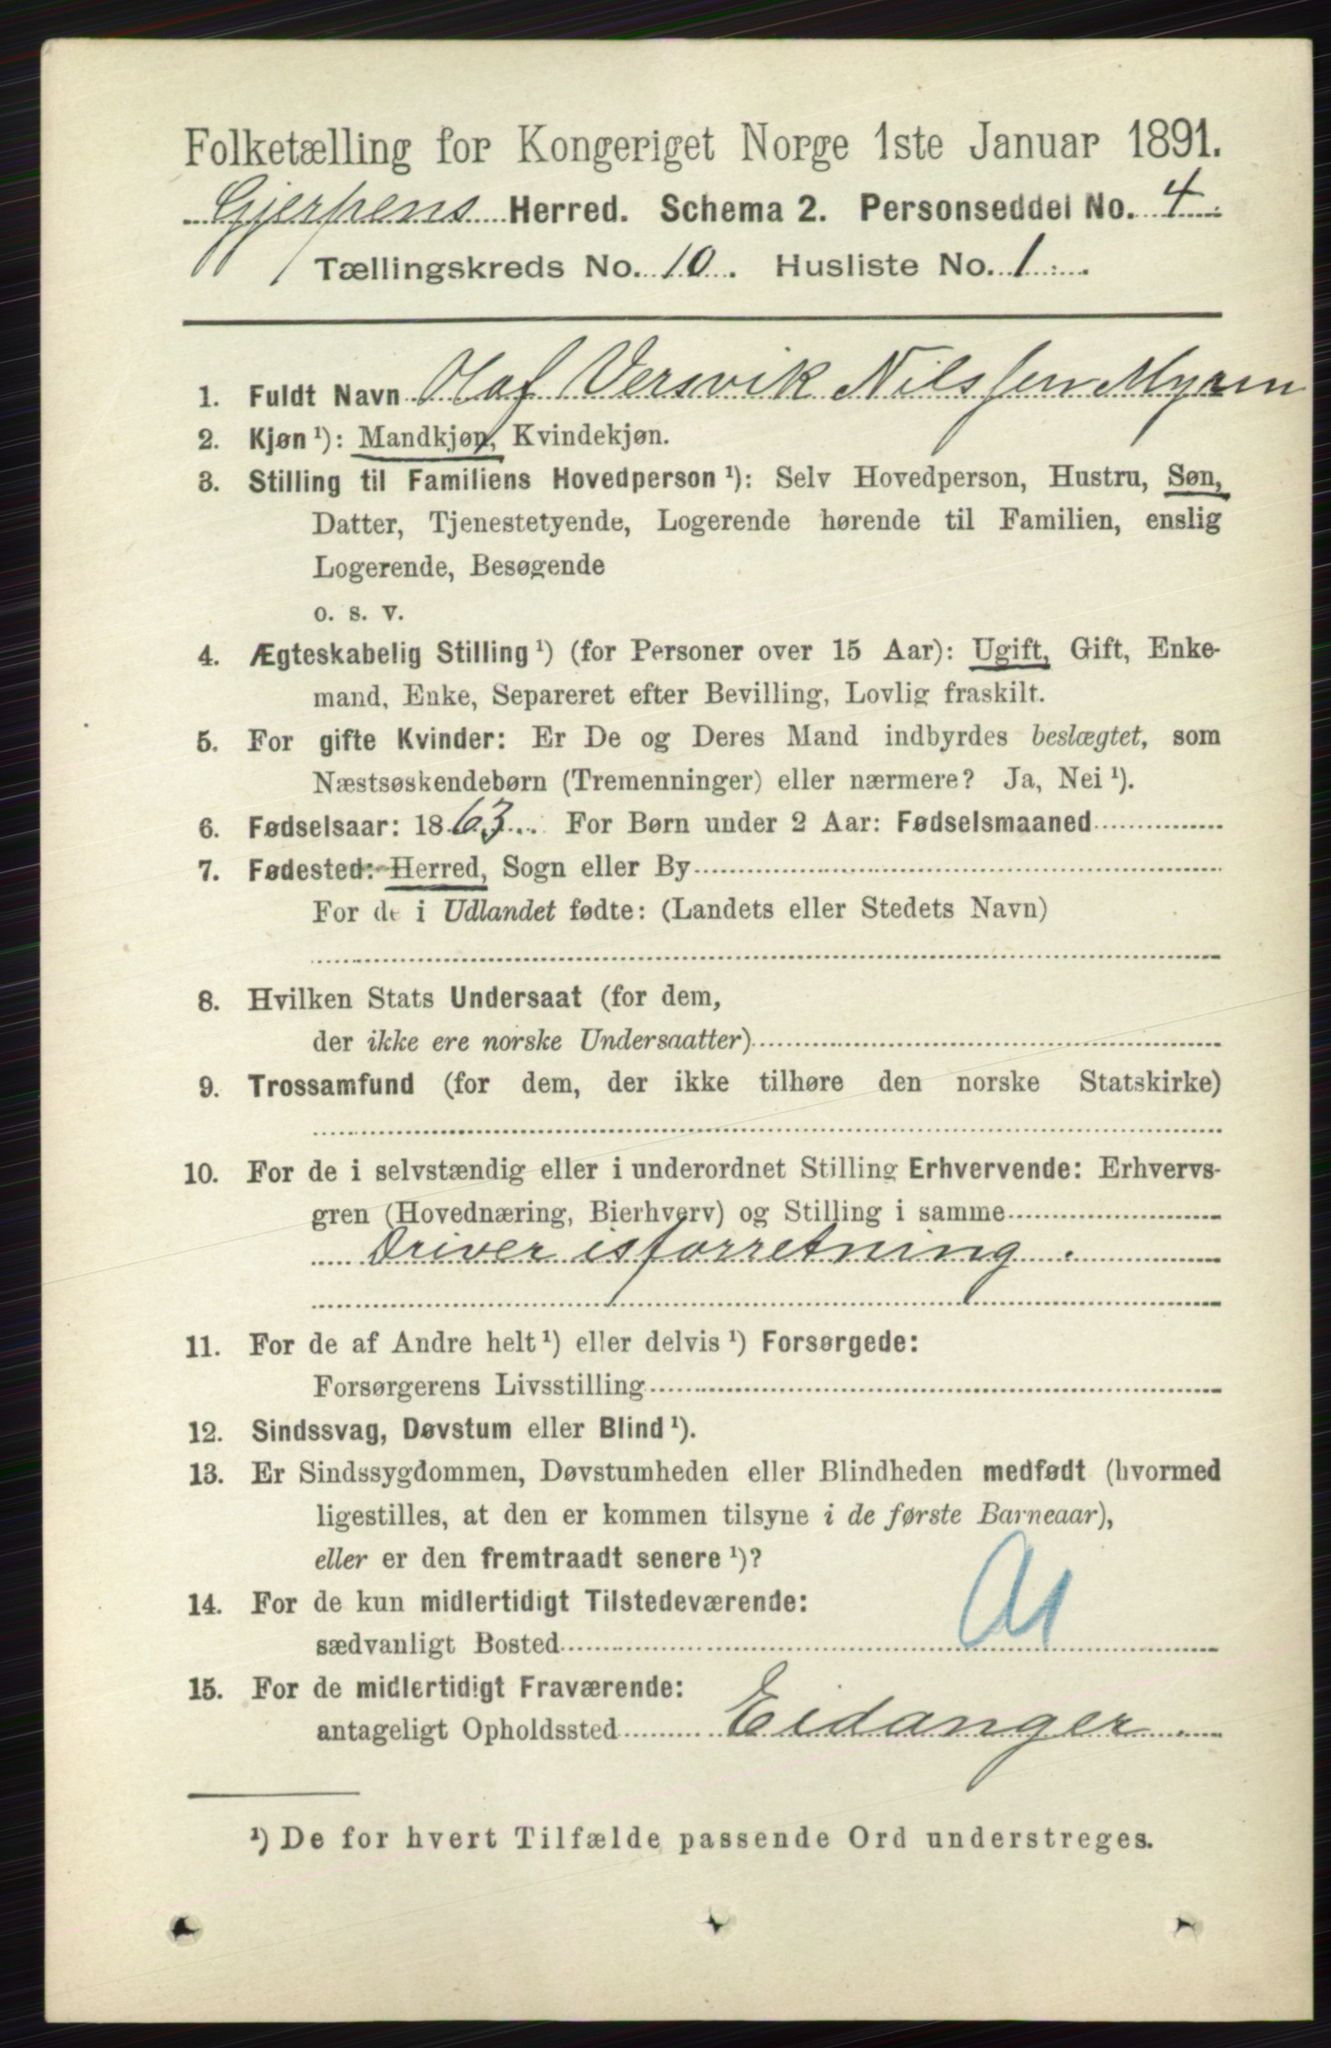 Folketælling for Kongeriget Norge 1ste Januar 1891.
Gjerpens Herred. Schema 2. Personseddel No. 4
Tællingskreds No. 10. Husliste No. 1.
1. Fuldt Navn Olaf Versvik Nilssen Myren
2. Kjøn ¹): Mandkjøn, Kvindekjøn.
3. Stilling til Familiens Hovedperson ¹): Selv Hovedperson, Hustru, Søn,
Datter, Tjenestetyende, Logerende hørende til Familien, enslig
Logerende, Besøgende
o. s. v.
4. Ægteskabelig Stilling ¹) (for Personer over 15 Aar): Ugift, Gift, Enke-
mand, Enke, Separeret efter Bevilling, Lovlig fraskilt.
5. For gifte Kvinder: Er De og Deres Mand indbyrdes beslægtet, som
Næstsøskendebørn (Tremenninger) eller nærmere? Ja, Nei ¹).
6. Fødselsaar: 1863. For Børn under 2 Aar: Fødselsmaaned
7. Fødested: Herred, Sogn eller By
For de i Udlandet fødte: (Landets eller Stedets Navn)
8. Hvilken Stats Undersaat (for dem,
der ikke ere norske Undersaatter)
9. Trossamfund (for dem, der ikke tilhøre den norske Statskirke)
10. For de i selvstændig eller i underordnet Stilling Erhvervende: Erhvervs-
gren (Hovednæring, Bierhverv) og Stilling i samme
Driver isforretning.
11. For de af Andre helt ¹) eller delvis ¹) Forsørgede:
Forsørgerens Livsstilling
12. Sindssvag, Døvstum eller Blind ¹).
13. Er Sindssygdommen, Døvstumheden eller Blindheden medfødt (hvormed
ligestilles, at den er kommen tilsyne i de første Barneaar),
eller er den fremtraadt senere ¹)?
14. For de kun midlertidigt Tilstedeværende:
sædvanligt Bosted
15. For de midlertidigt Fraværende:
antageligt Opholdssted Eidanger.
¹) De for hvert Tilfælde passende Ord understreges.